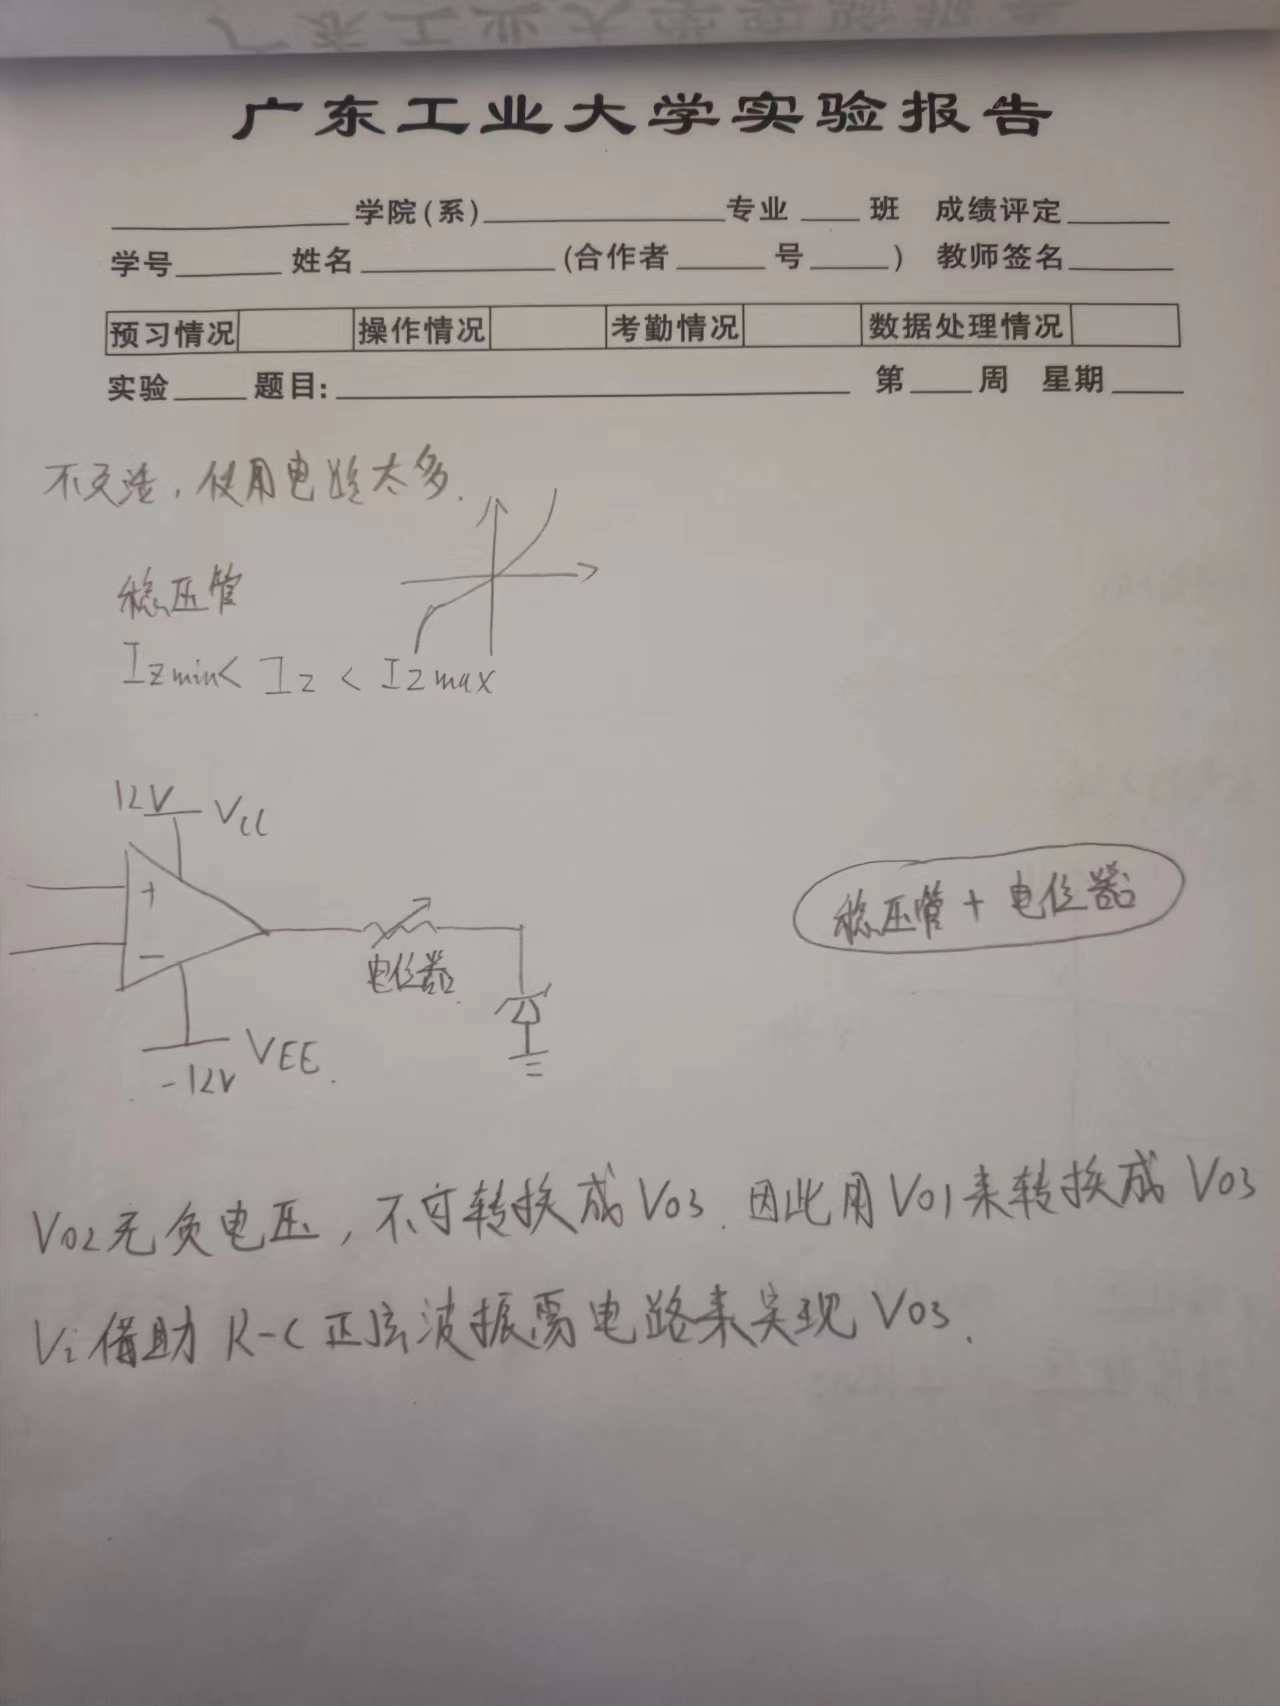 广东工业大学实验报告
学院(系) 专业 班 成绩评定
学号 姓名 (合作者 号 ) 教师签名
预习情况 操作情况 考勤情况 数据处理情况
实验 题目: 第 周 星期
不灵活，使用电路太多.
稳压管
Izmin< Iz < Izmax
12V VCC
+
稳压管 + 电位器
-
电位器
VEE.
-12V
Vo2无负电压，不可转换成Vo3. 因此用Vo1来转换成Vo3
Vi借助R-C正弦波振荡电路来实现Vo3.